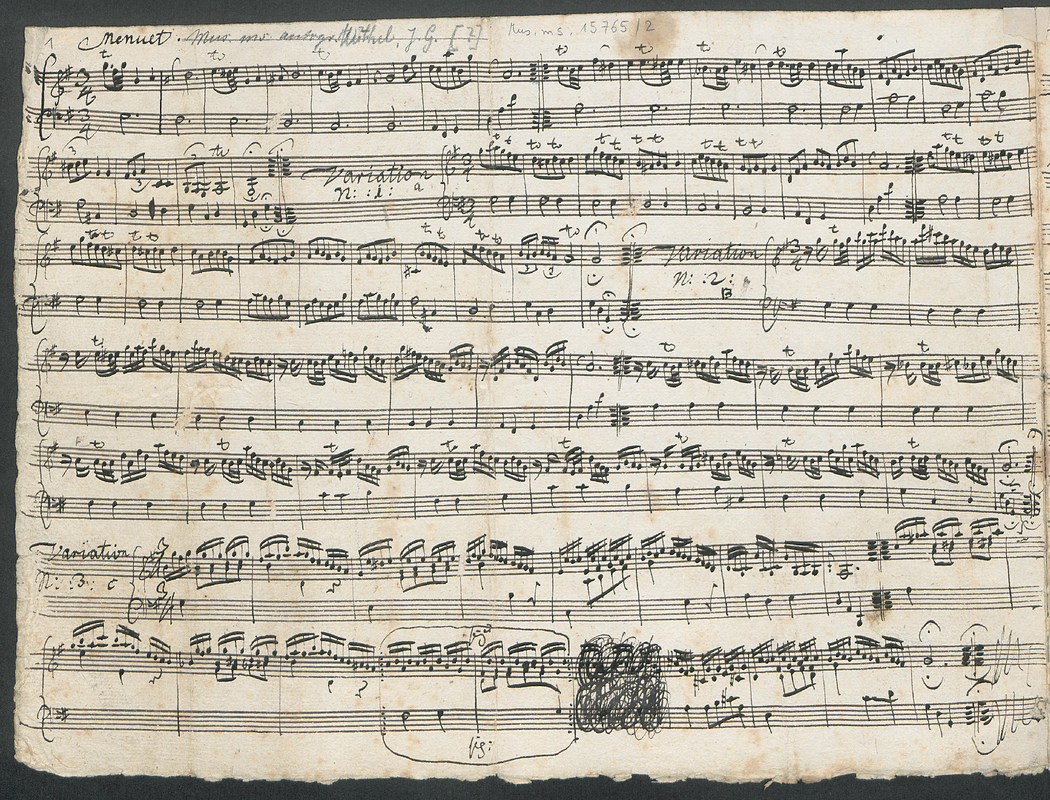 1 Menuet. Mus. ms. autogr. Müthel, J. G. [7] Mus. ms. 15765/2
Variation
N: :1: a
Variation
N: :2:
B
Variation
N: :3: c